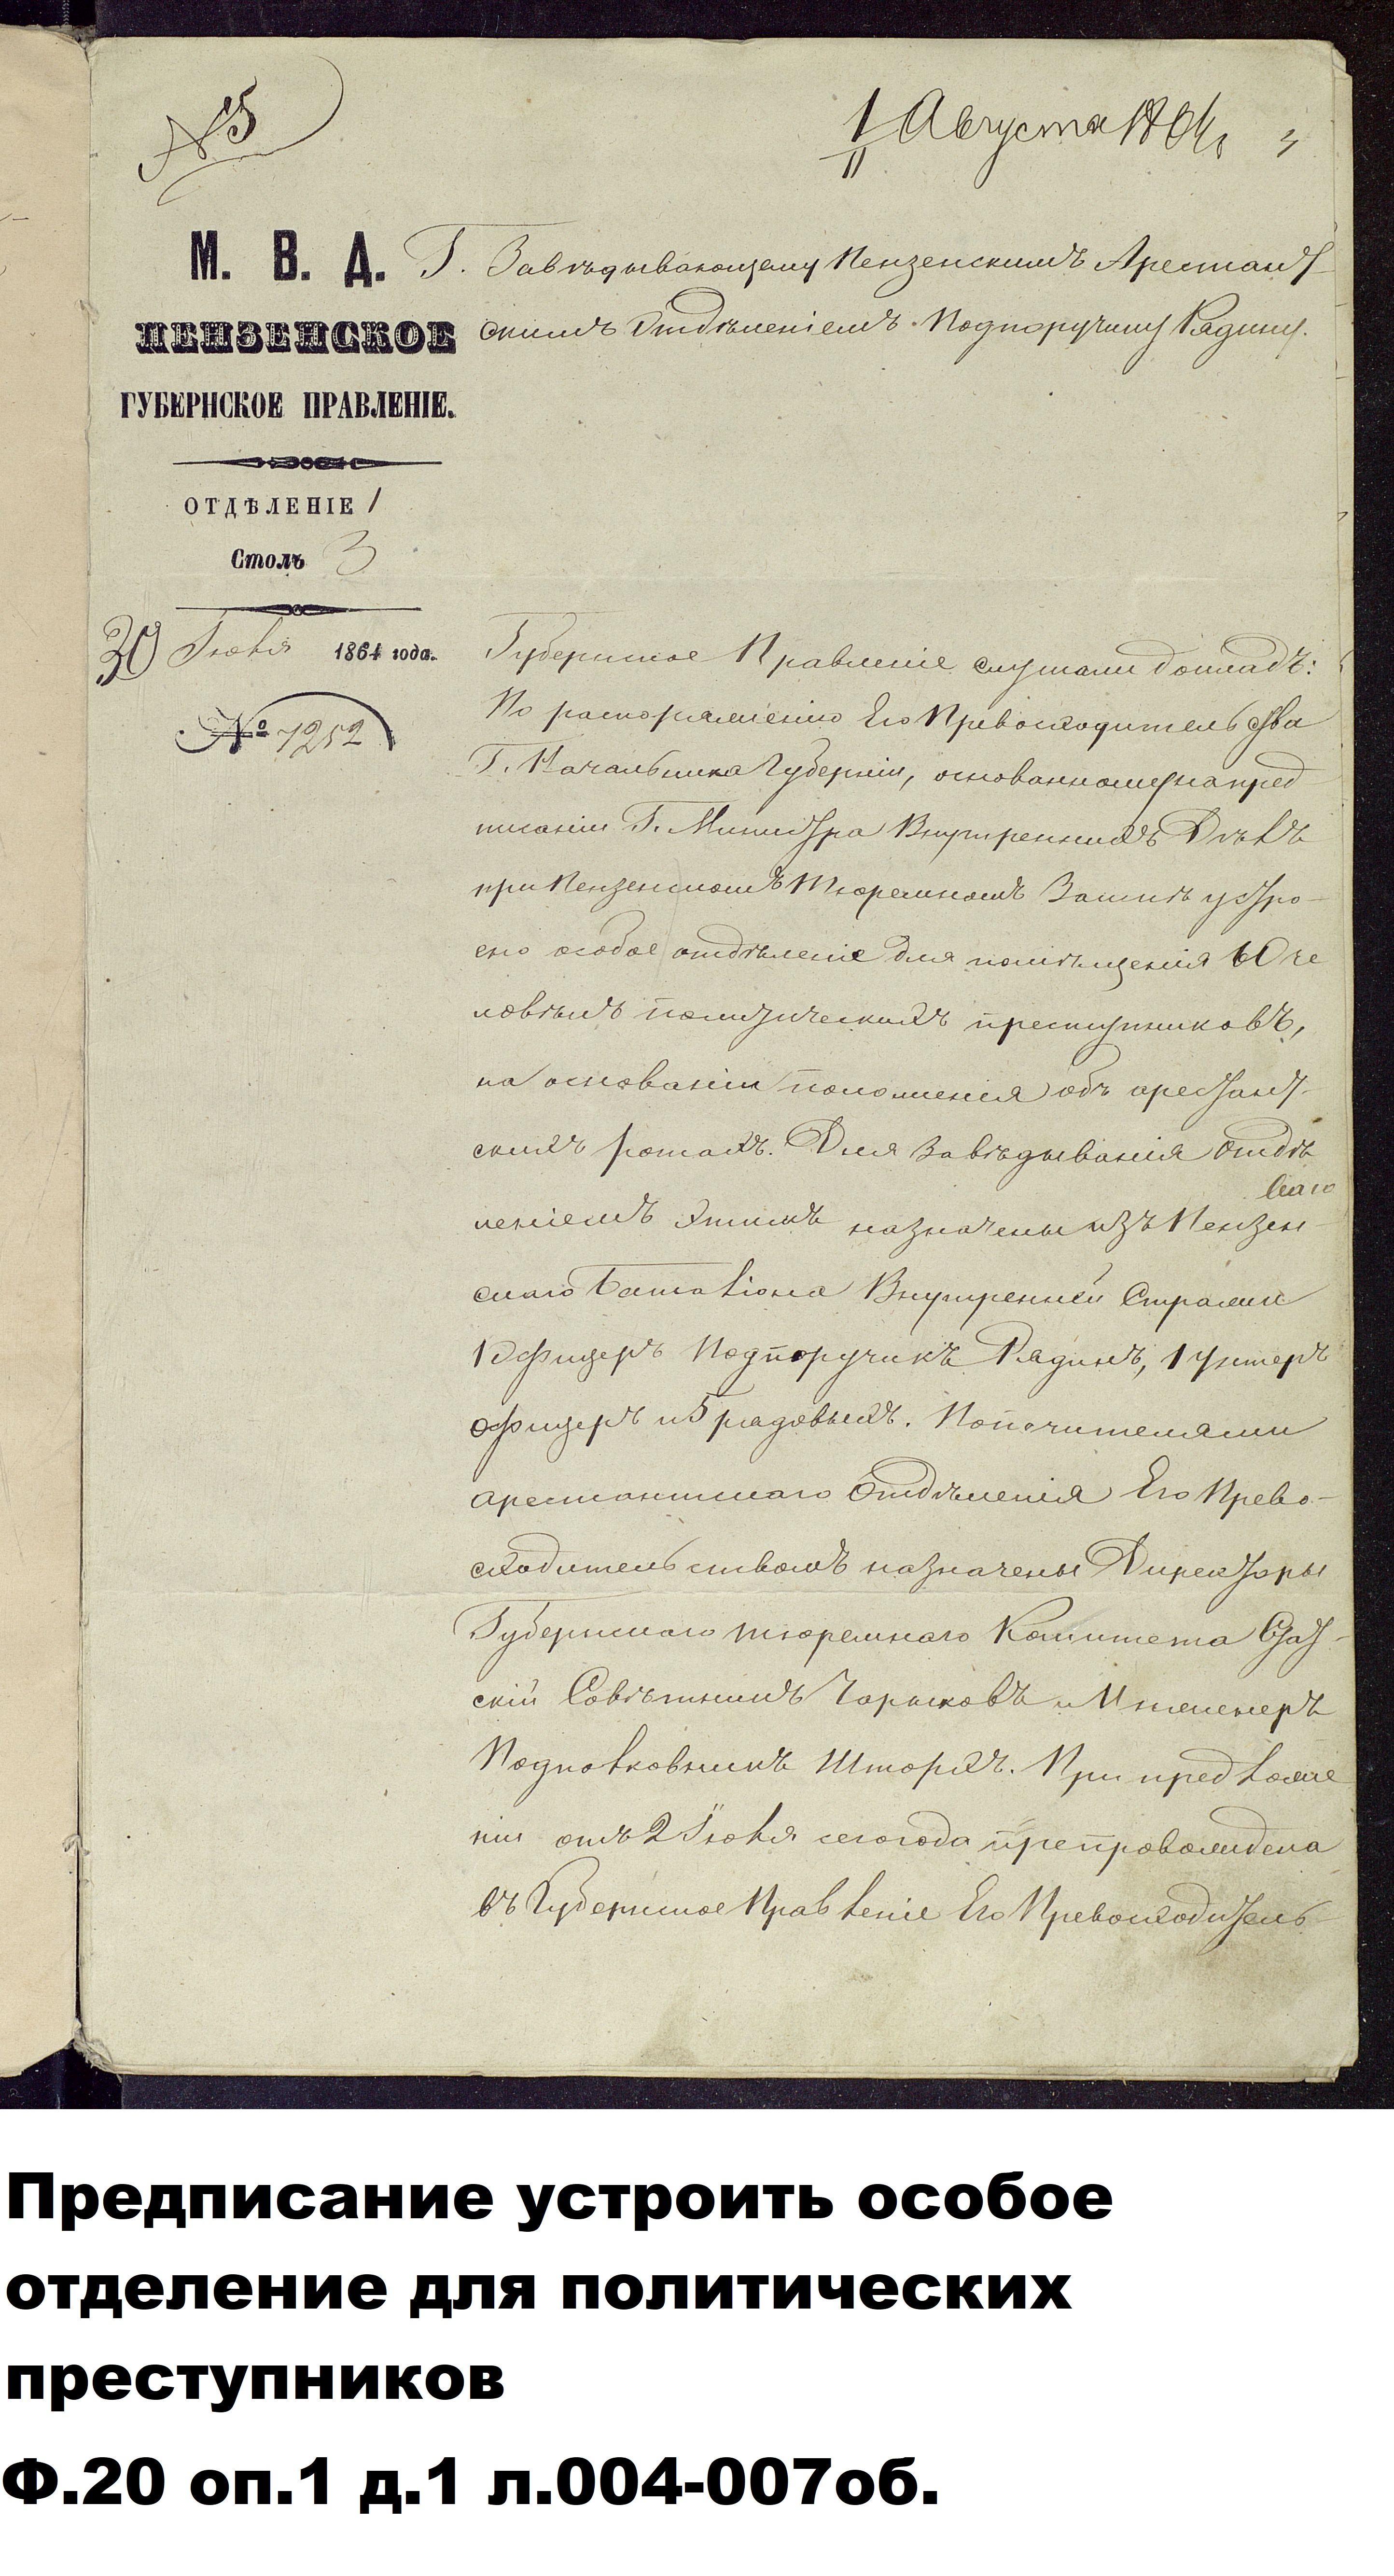 № 5
1 Августа 1864 г.
II
М. В. Д.
ПЕНЗЕНСКОЕ
ГУБЕРНСКОЕ ПРАВЛЕНІЕ.
ОТДѢЛЕНІЕ 1
Столъ 3
30 Іюля 1864 года.
№ 7252
Г. Завѣдывающему Пензенскимъ Арестант
скимъ Отдѣленіемъ Подпоручику Рядину.
Губернское Правленіе слушали докладъ:
По распоряженію Его Превосходительства
Г. Начальника Губерніи, основанному на пред
писаніи Г. Министра Внутреннихъ Дѣлъ
при Пензенскомъ Тюремномъ Замкѣ устро-
ено особое отдѣленіе для помѣщенія 60 че
ловѣкъ политическихъ преступниковъ,
на основаніи положенія объ арестант-
скихъ ротахъ. Для завѣдыванія отдѣ
леніемъ этимъ назначены изъ Пензен-
скаго Баталіона Внутренней Стражи
1 Офицеръ Подпоручикъ Рядинъ, 1 Унтеръ
Офицеръ и 5 рядовыхъ. Попечителями
арестантскаго Отдѣленія Его Прево-
сходительствомъ назначены Директоры
Губернскаго тюремнаго Комитета Стат-
скій Совѣтникъ Чарыковъ и Инженеръ
Подполковникъ Шторхъ. При предложе
ніи отъ 2 Іюля сего года препровождена
въ Губернское Правленіе Его Превосходитель-
Предписание устроить особое
отделение для политических
преступников
Ф.20 оп.1 д.1 л.004-007об.